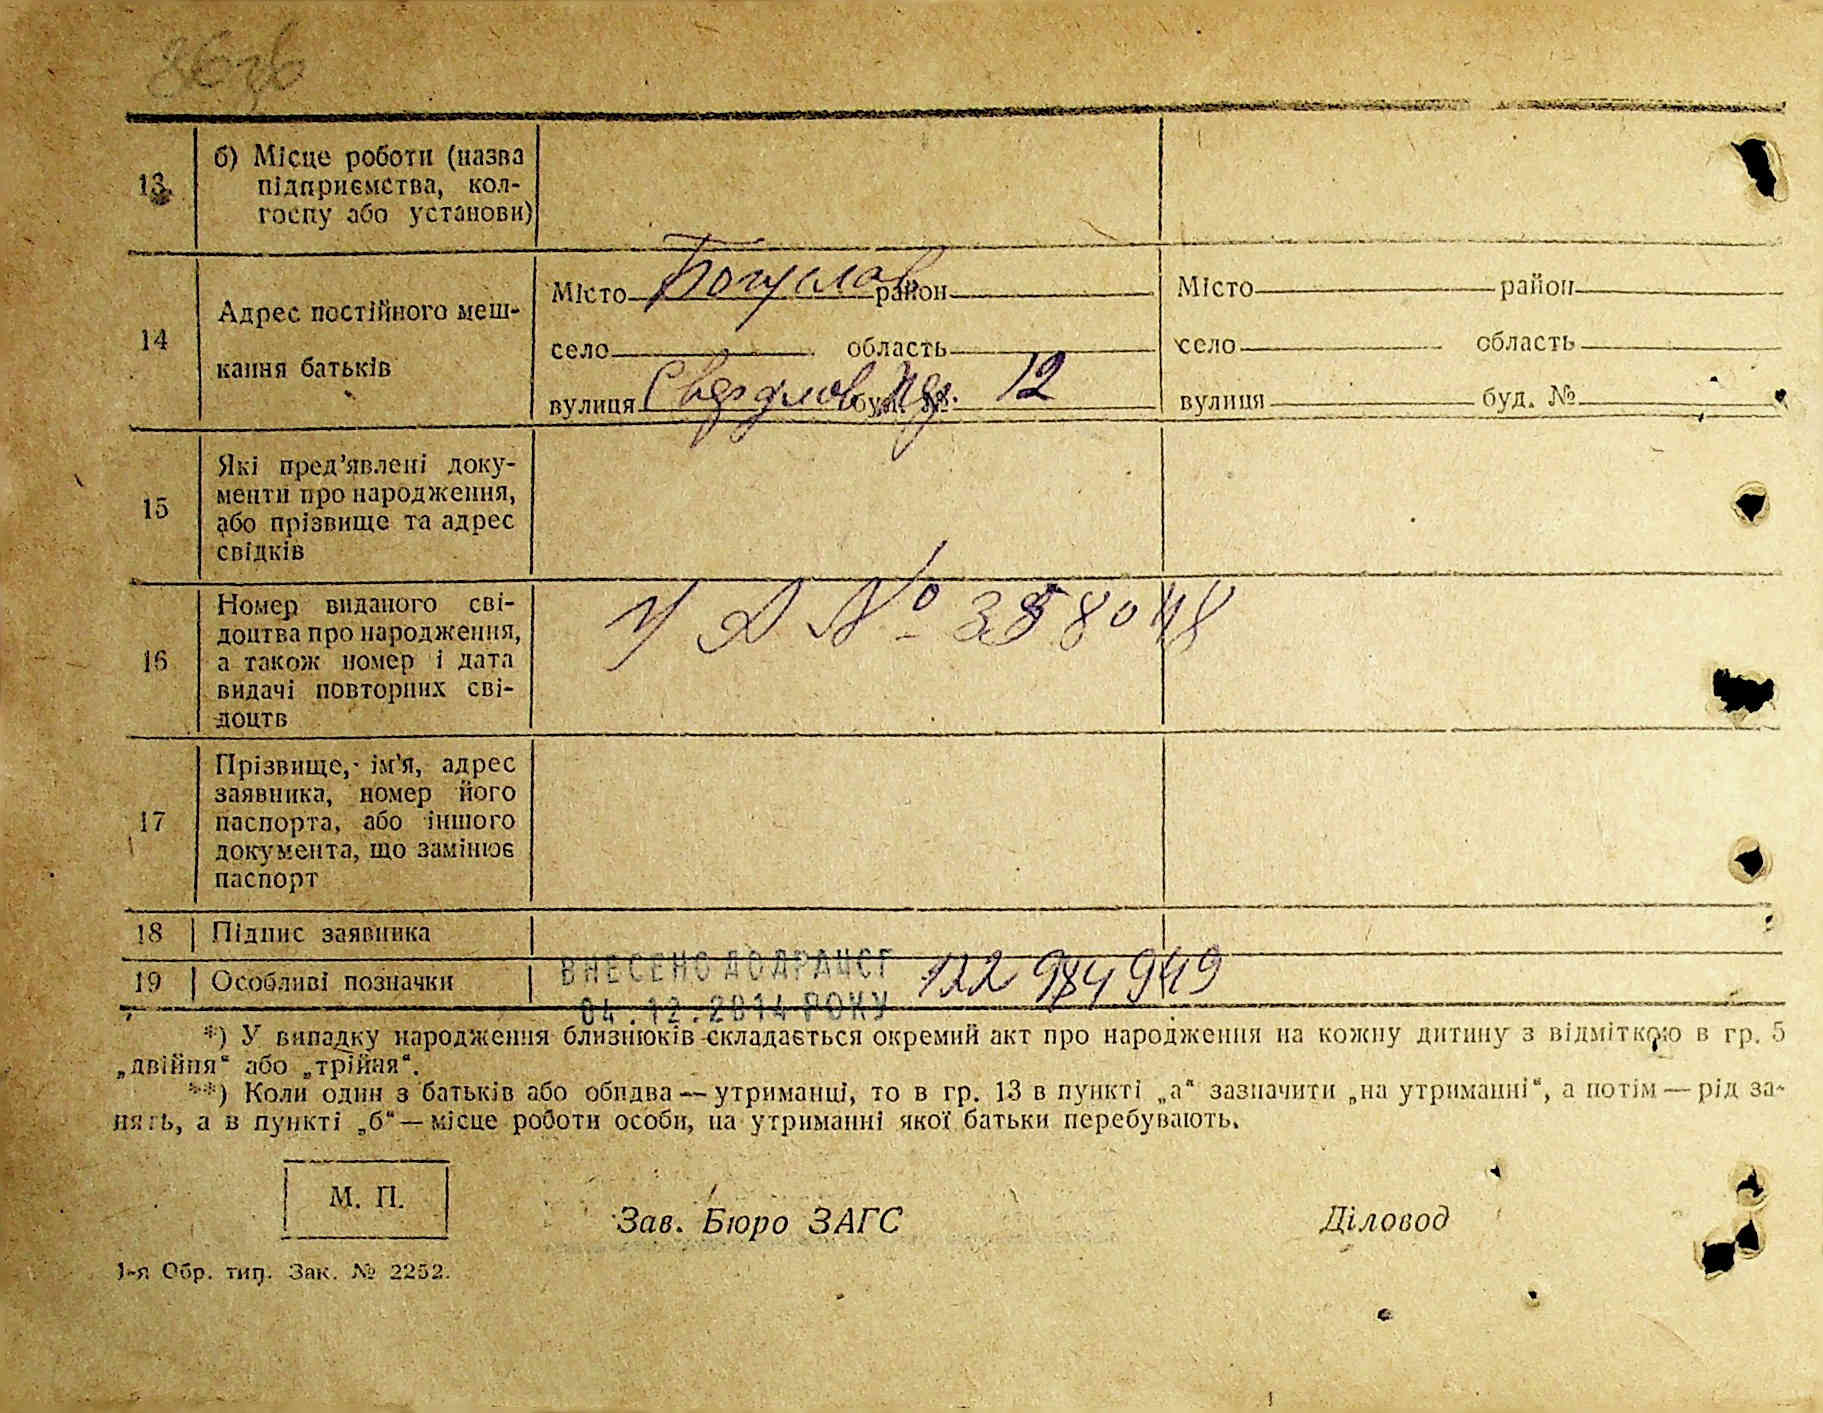 13 б) Місце роботи (назва
підприємства, кол-
госпу або установи)
Місто Богуслав район Місто район
14 Адрес постійного меш-
кання батьків
село область село область
вулиця Свердлов буд. № 12 вулиця буд. №
15 Які пред’явлені доку-
менти про народження,
або прізвище та адрес
свідків
16 Номер виданого сві-
доцтва про народження,
а також номер і дата
видачі повторних сві-
доцтв
№ 358048
17 Прізвище, ім’я, адрес
заявника, номер його
паспорта, або іншого
документа, що замінює
паспорт
18 Підпис заявника
19 Особливі позначки ВНЕСЕНО ДО ДРАЦСГ 122 984 949
04.12.2014 РОКУ
*) У випадку народження близнюків складається окремий акт про народження на кожну дитину з відміткою в гр. 5
„двійня“ або „трійня“.
**) Коли один з батьків або обидва — утриманці, то в гр. 13 в пункті „а“ зазначити „на утриманні“, а потім — рід за-
нять, а в пункті „б“ — місце роботи особи, на утриманні якої батьки перебувають.
М. П.
Зав. Бюро ЗАГС Діловод
1-я Обр. тип. Зак. № 2252.